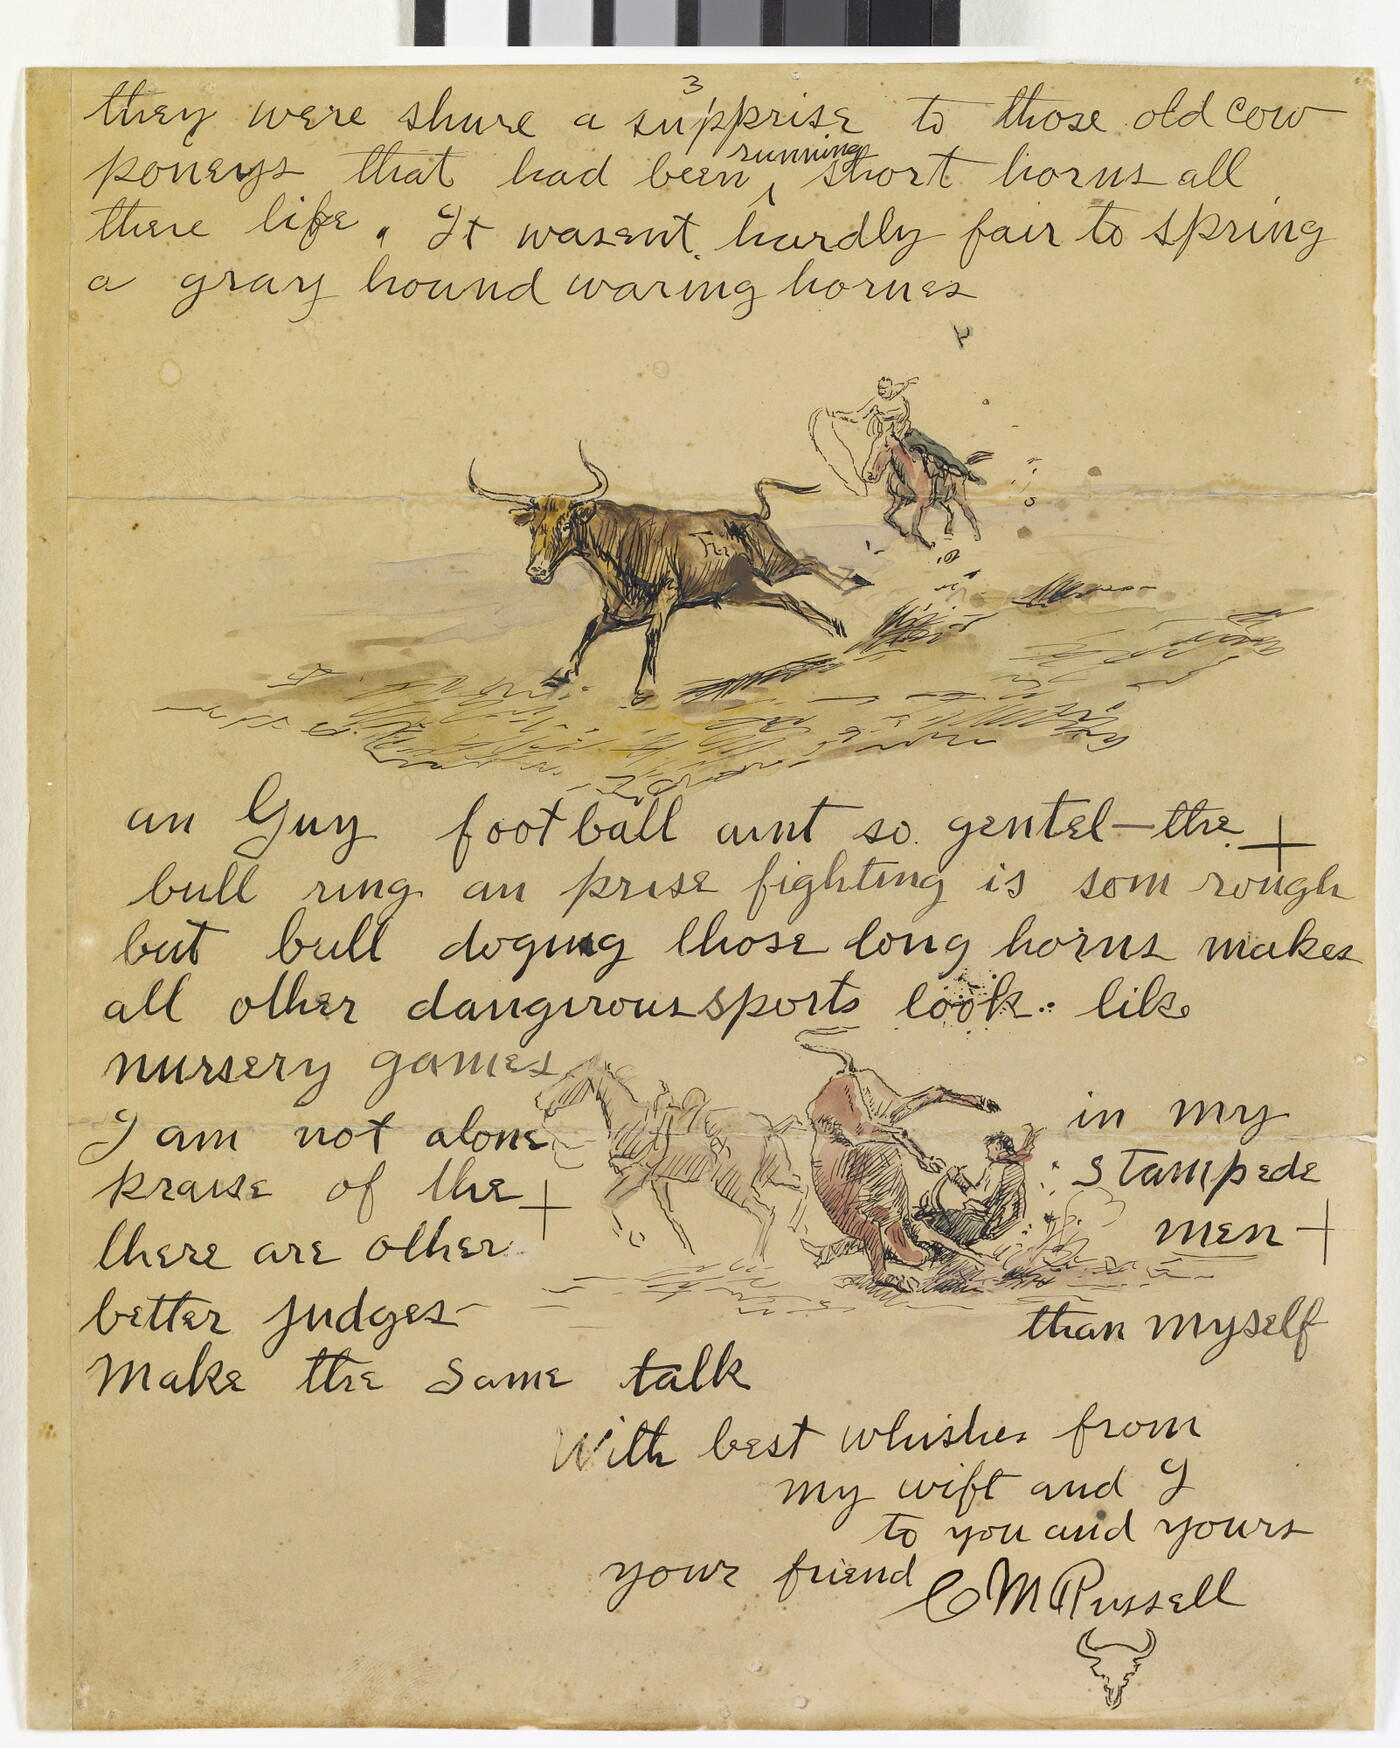 3
they were shure a supprise to those old cow
poneys that had been running short horns all
there life. It wasent hardly fair to spring
a gray hound waring hornes
an Guy football aint so gentel — the
bull ring an prise fighting is som rough
but bull doging those long horns makes
all other dangirous sports look like
nursery games
I am not alone in my
praise of the stampede
men
there are other
better judges than myself
Make the same talk
With best whishes from
my wift and I
to you and yours
your friend C M Russell